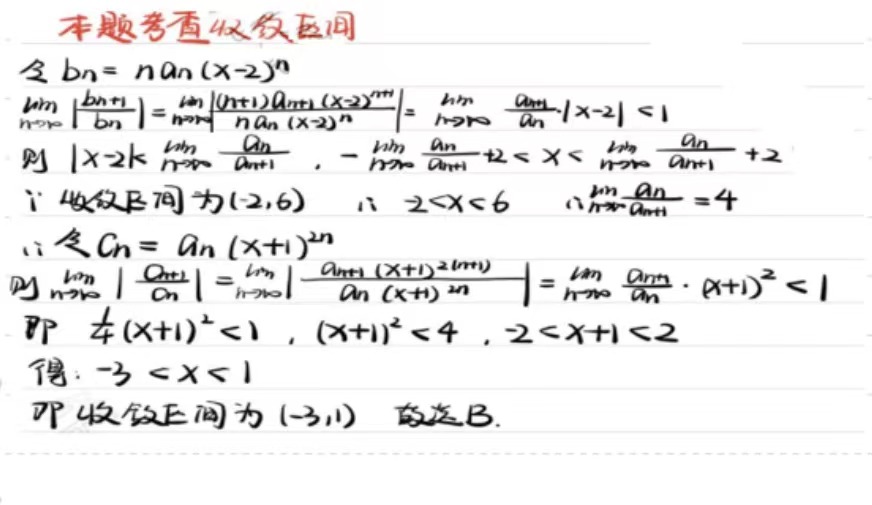 本题考查收敛区间
令 bn = n an (x-2)^n
lim n→∞ |bn+1/bn| = lim n→∞ |(n+1)an+1 (x-2)^n+1 / n an (x-2)^n| = lim n→∞ an+1/an · |x-2| < 1
则 |x-2| < lim n→∞ an/an+1 , - lim n→∞ an/an+1 +2 < x < lim n→∞ an/an+1 +2
∵ 收敛区间为 (-2,6) ∴ -2<x<6 ∴ lim n→∞ an/an+1 = 4
∴ 令 Cn = an (x+1)^2n
则 lim n→∞ |Cn+1/Cn| = lim n→∞ |an+1 (x+1)^2(n+1) / an (x+1)^2n| = lim n→∞ an+1/an · (x+1)² < 1
即 1/4 (x+1)² < 1 , (x+1)² < 4 , -2 < x+1 < 2
得: -3 < x < 1
即收敛区间为 (-3,1) 故选B.